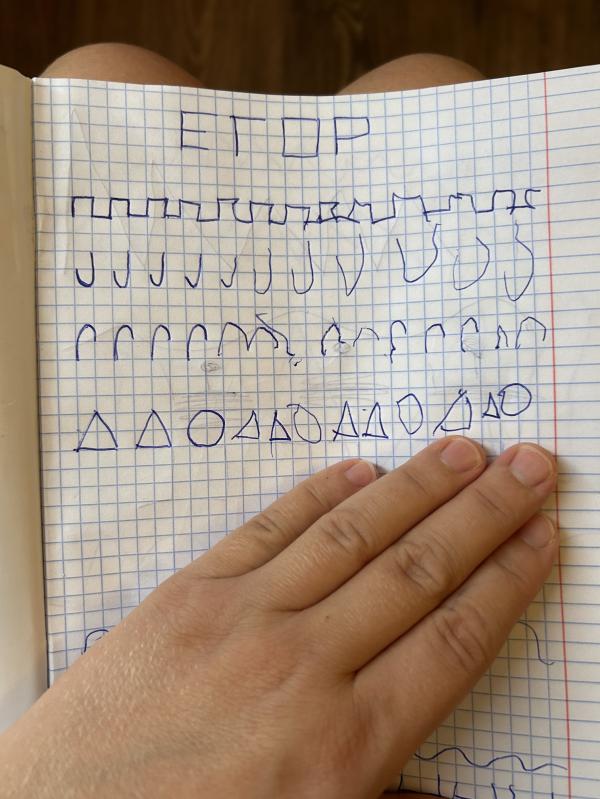 ЕГОР